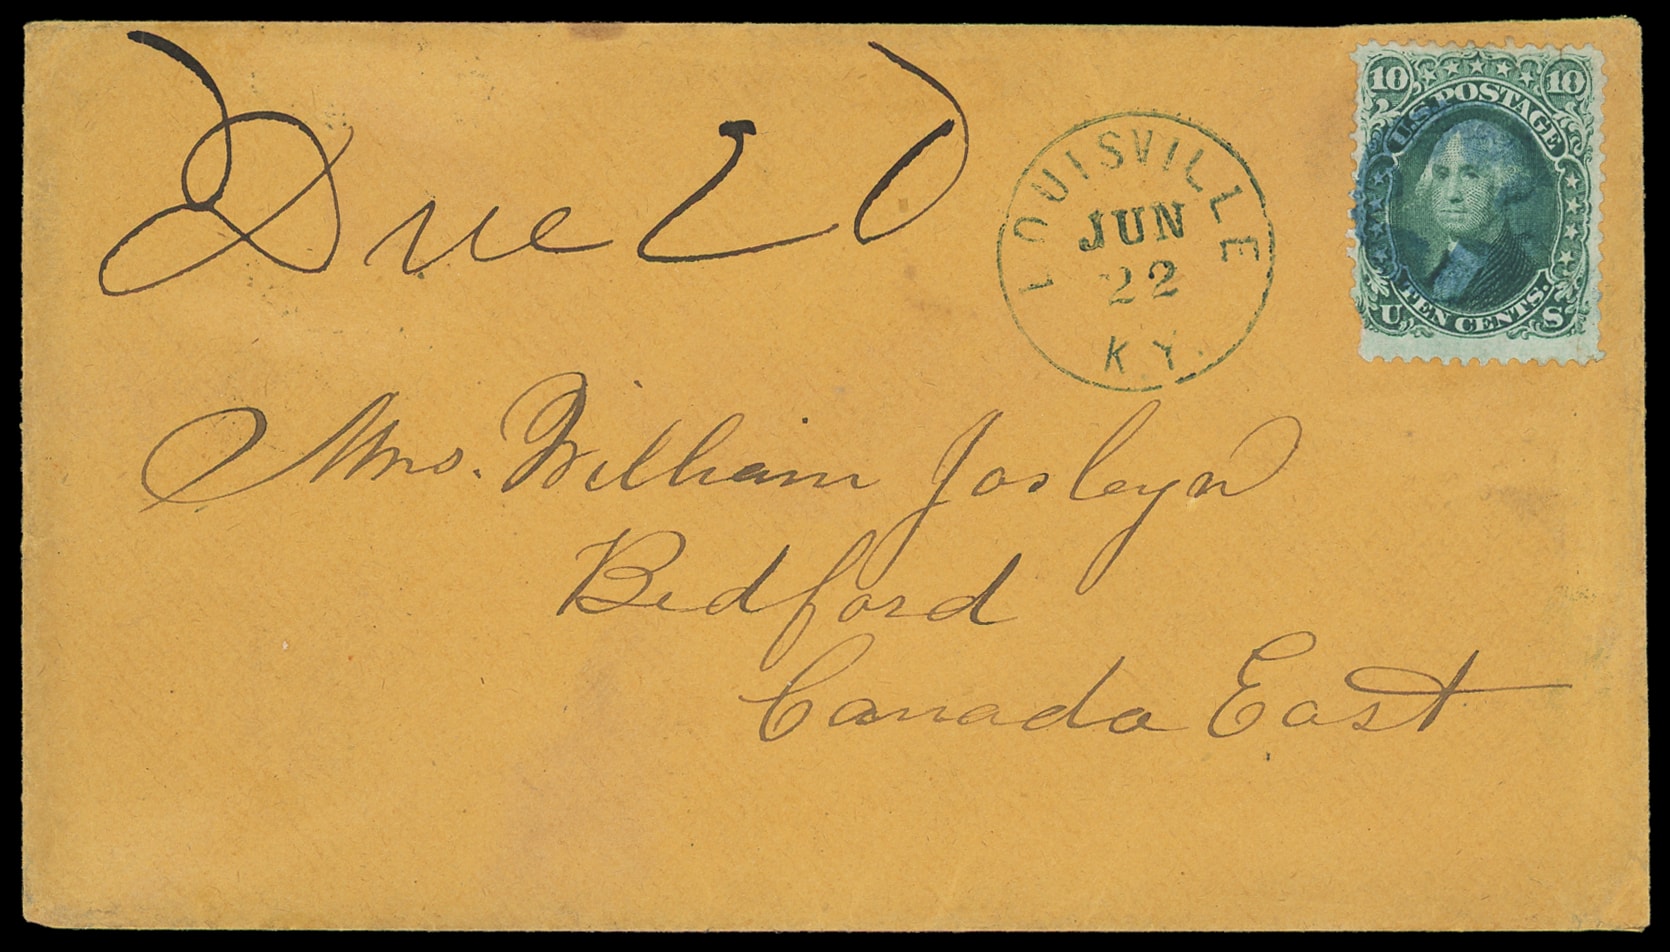 Due 2d
LOUISVILLE
JUN
22
KY.
10 10
U.S. POSTAGE
TEN CENTS.
U S
Mrs. William Joslyn
Bedford
Canada East